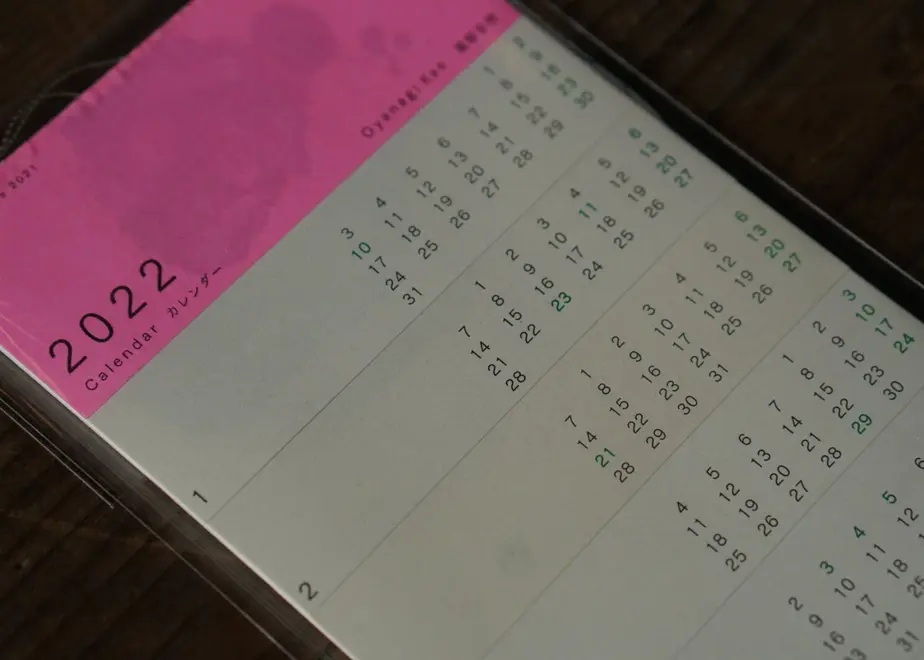 2021
Oyanagi Kae
2022
Calendar カレンダー
1
1 2
3 4 5 6 7 8 9
10 11 12 13 14 15 16
17 18 19 20 21 22 23
24 25 26 27 28 29 30
31
2
1 2 3 4 5 6
7 8 9 10 11 12 13
14 15 16 17 18 19 20
21 22 23 24 25 26 27
28
1 2 3 4 5 6
7 8 9 10 11 12 13
14 15 16 17 18 19 20
21 22 23 24 25 26 27
28 29 30 31
1 2 3
4 5 6 7 8 9 10
11 12 13 14 15 16 17
18 19 20 21 22 23 24
25 26 27 28 29 30
2 3 4 5 6
9 10 11 12
16 17 18
23 24 25
31